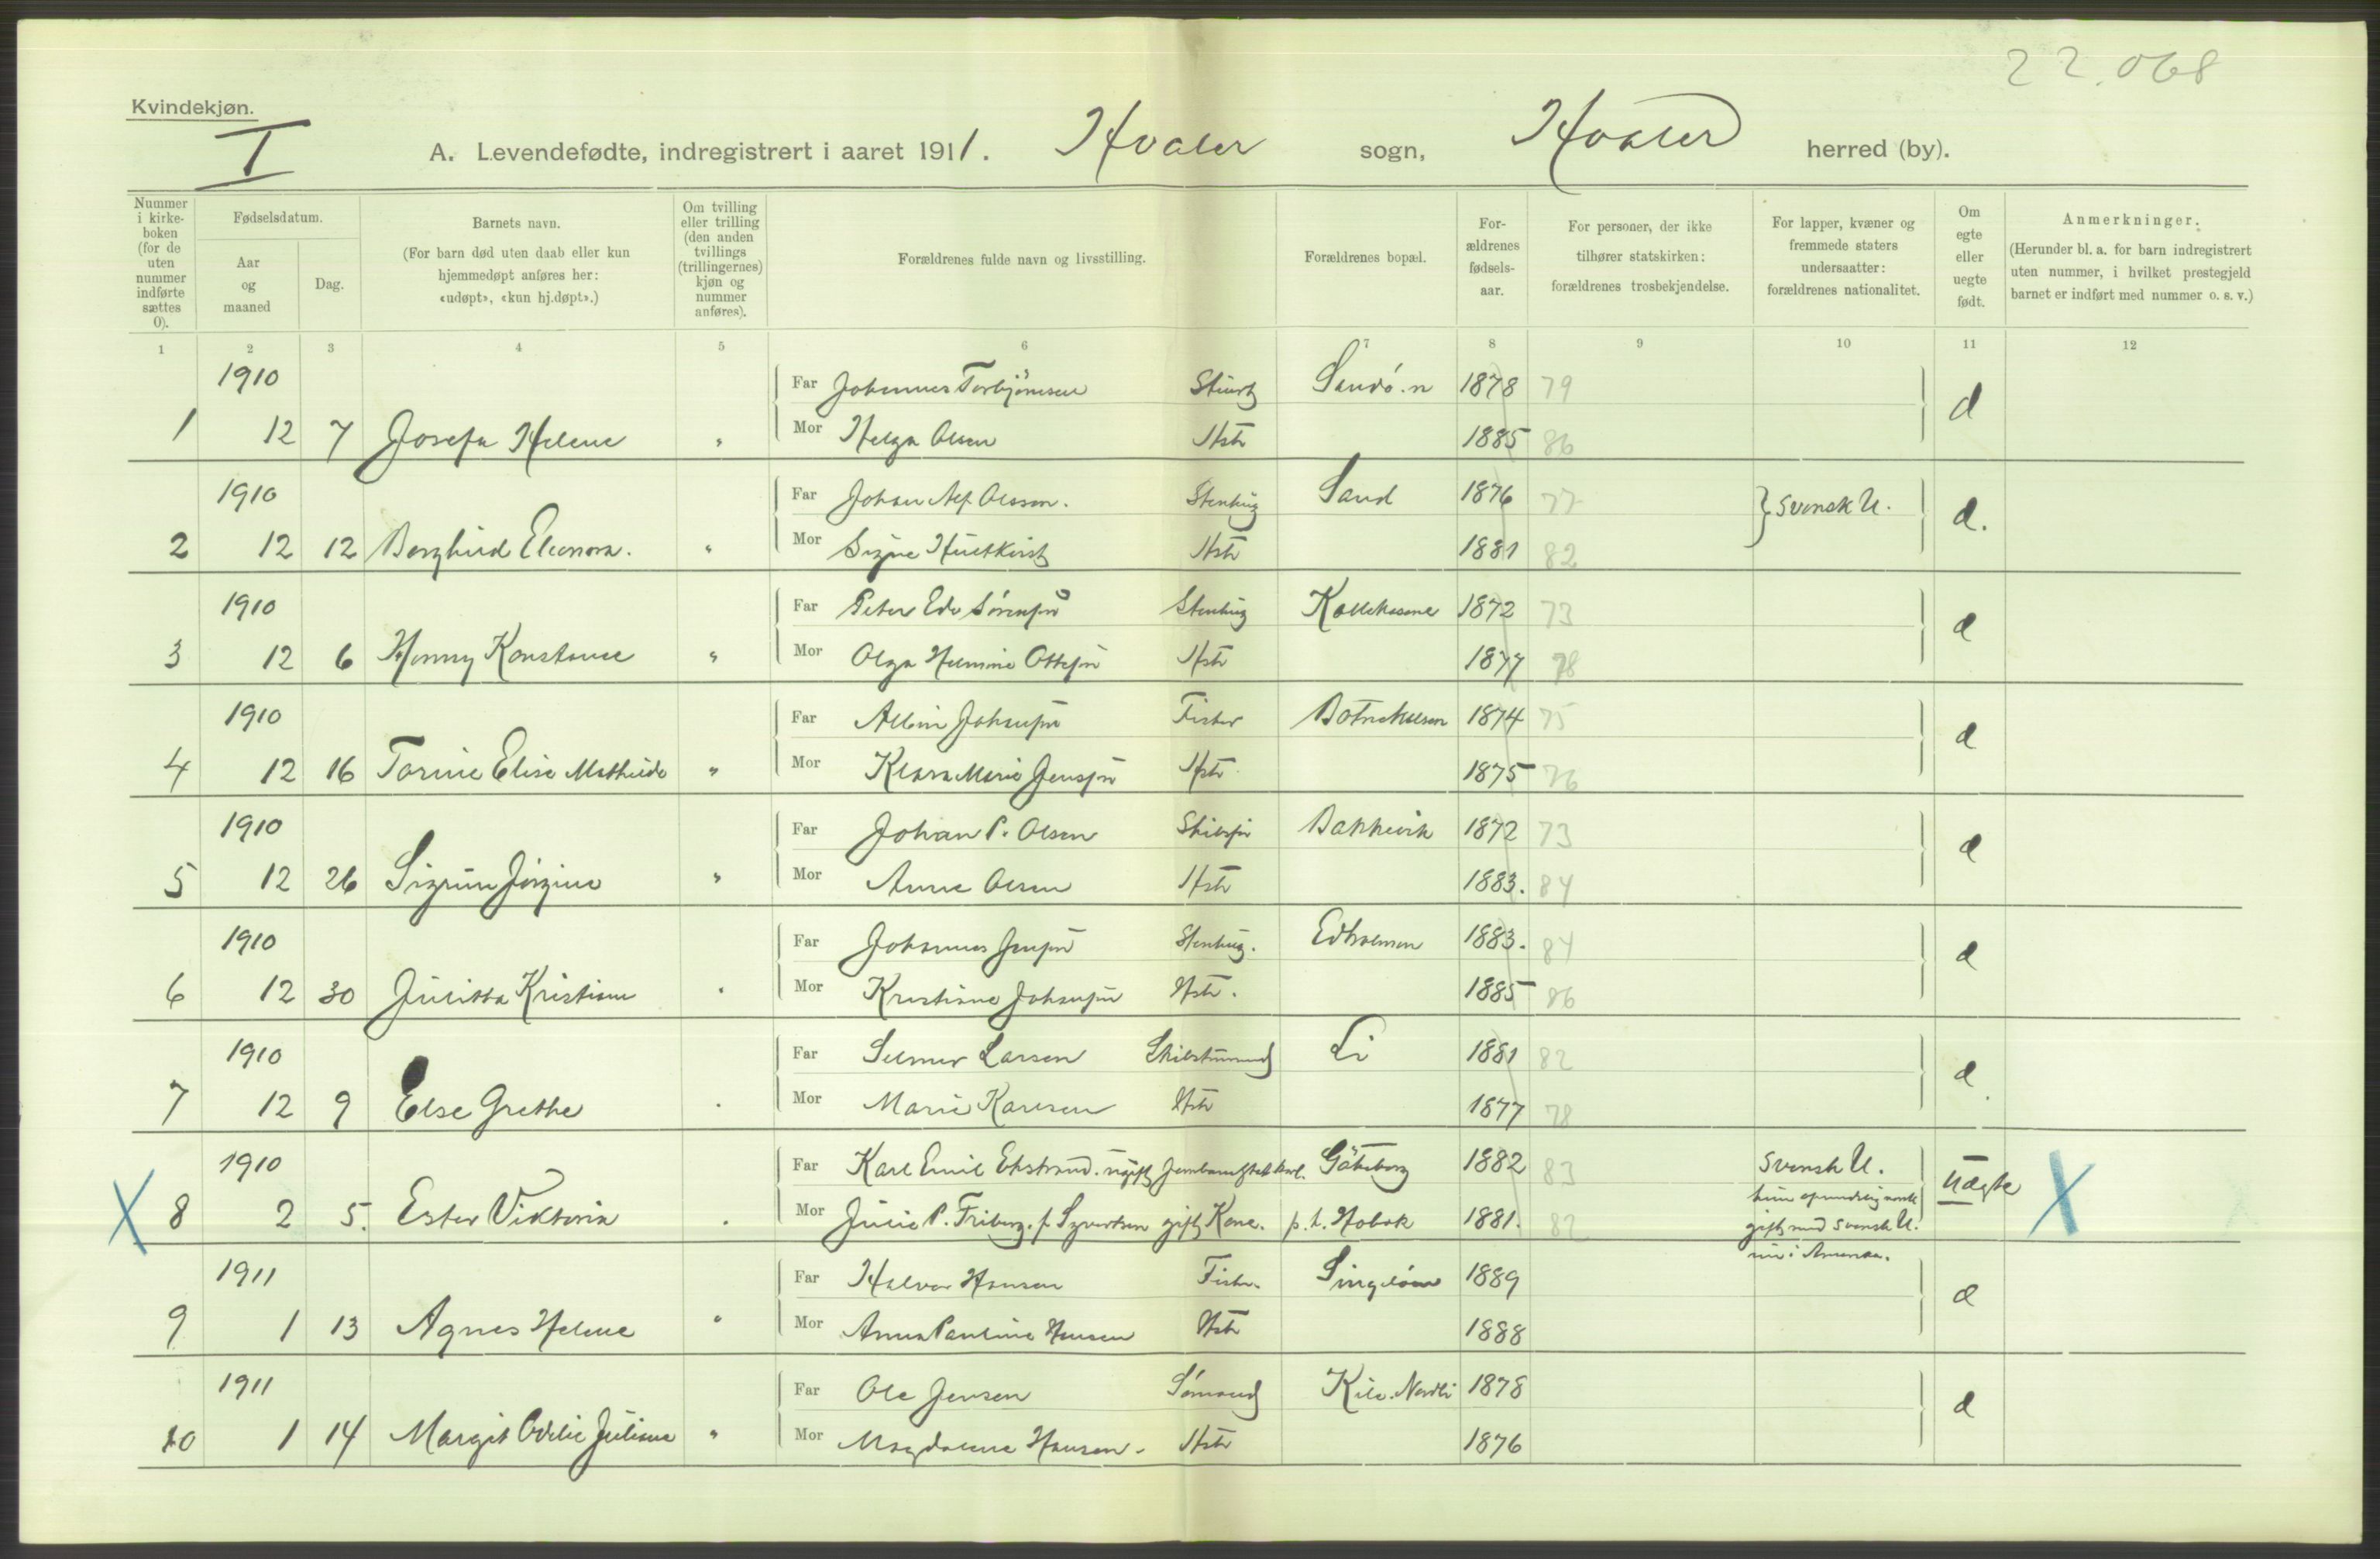 22.068
Kvindekjøn.
I
A. Levendefødte, indregistrert i aaret 1911. Hvaler sogn, Hvaler herred (by).
Nummer i kirkeboken (for de uten nummer indførte sættes 0).
Fødselsdatum.
Aar og maaned
Dag.
Barnets navn.
(For barn død uten daab eller kun hjemmedøpt anføres her: «udøpt», «kun hj.døpt».)
Om tvilling eller trilling (den anden tvillings (trillingernes) kjøn og nummer anføres).
Forældrenes fulde navn og livsstilling.
Forældrenes bopæl.
Forældrenes fødselsaar.
For personer, der ikke tilhører statskirken: forældrenes trosbekjendelse.
For lapper, kvæner og fremmede staters undersaatter: forældrenes nationalitet.
Om egte eller uegte født.
Anmerkninger.
(Herunder bl. a. for barn indregistrert uten nummer, i hvilket prestegjeld barnet er indført med nummer o. s. v.)
1 2 3 4 5 6 7 8 9 10 11 12
1910 Far Johannes Torbjörnsen Sandö. n 1878 79 d
1 12 7 Josefa Helene " Mor Helga Olsen Hstr 1885 86
1910 Far Johan Alf. Olsson. Stenhug Sand 1876 77 } Svensk U. d.
2 12 12 Borghild Eleonora. " Mor Signe Hultkvist Hstr 1881 82
1910 Far Peter Edv Sörensen Stenhug 1872 73 d
3 12 6 Henny Konstanse " Mor Olga Helmine Ottesen Hstr 1877 78
1910 Far Albin Johansen Fisker 1874 75 d
4 12 16 Torine Elise Mathilde " Mor Klara Marie Jensen Hstr 1875 76
1910 Far Johan P. Olsen Bakkevik 1872 73 d
5 12 26 Sigrun Jörgine " Mor Anne Olsen Hstr 1883. 84
1910 Far Johannes Jensen Stenhug. Edholmen 1883. 84 d
6 12 30 Julitta Kristiane " Mor Kristiane Johansen Hstr. 1885 86
1910 Far Selmer Larsen Li 1881 82 d
7 12 9 Else Grethe . Mor Marie Karlsen Hstr 1877 78
1910 Far Karl Emil Ekstrand. ugift Göteborg 1882 83 Svensk U. Uægte
X 8 2 5. Ester Viktoria . Mor Julie P. Friberg. f. Syvertsen gift Kone. p. t. Hobøk 1881. 82 hun oprindelig norsk X
gift med svensk U.
nu i Amerika.
1911 Far Halvor Hansen Fisker Singelöen 1889 d
9 1 13 Agnes Helene " Mor Anna Pauline Hansen Hstr 1888
1911 Far Ole Jensen Sömand Kile. Nordli 1878 d
10 1 14 Margit Odelie Juliane " Mor Magdalene Hansen. Hstr 1876